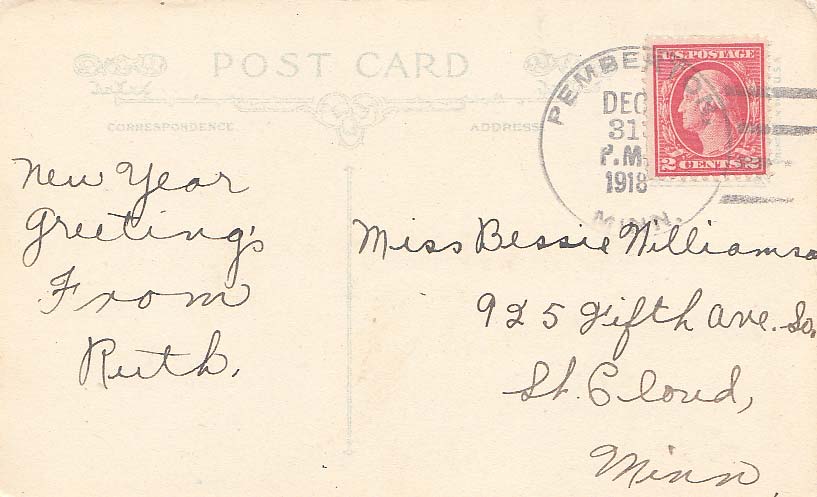 POST CARD
CORRESPONDENCE.
ADDRESS
PEMBERTON,
DEC
31
P.M.
1918
MINN.
U.S. POSTAGE
2 CENTS 2
New Year
Greetings
From
Ruth.
Miss Bessie Williamso
925 Fifth Ave. So.
St. Cloud,
Minn.